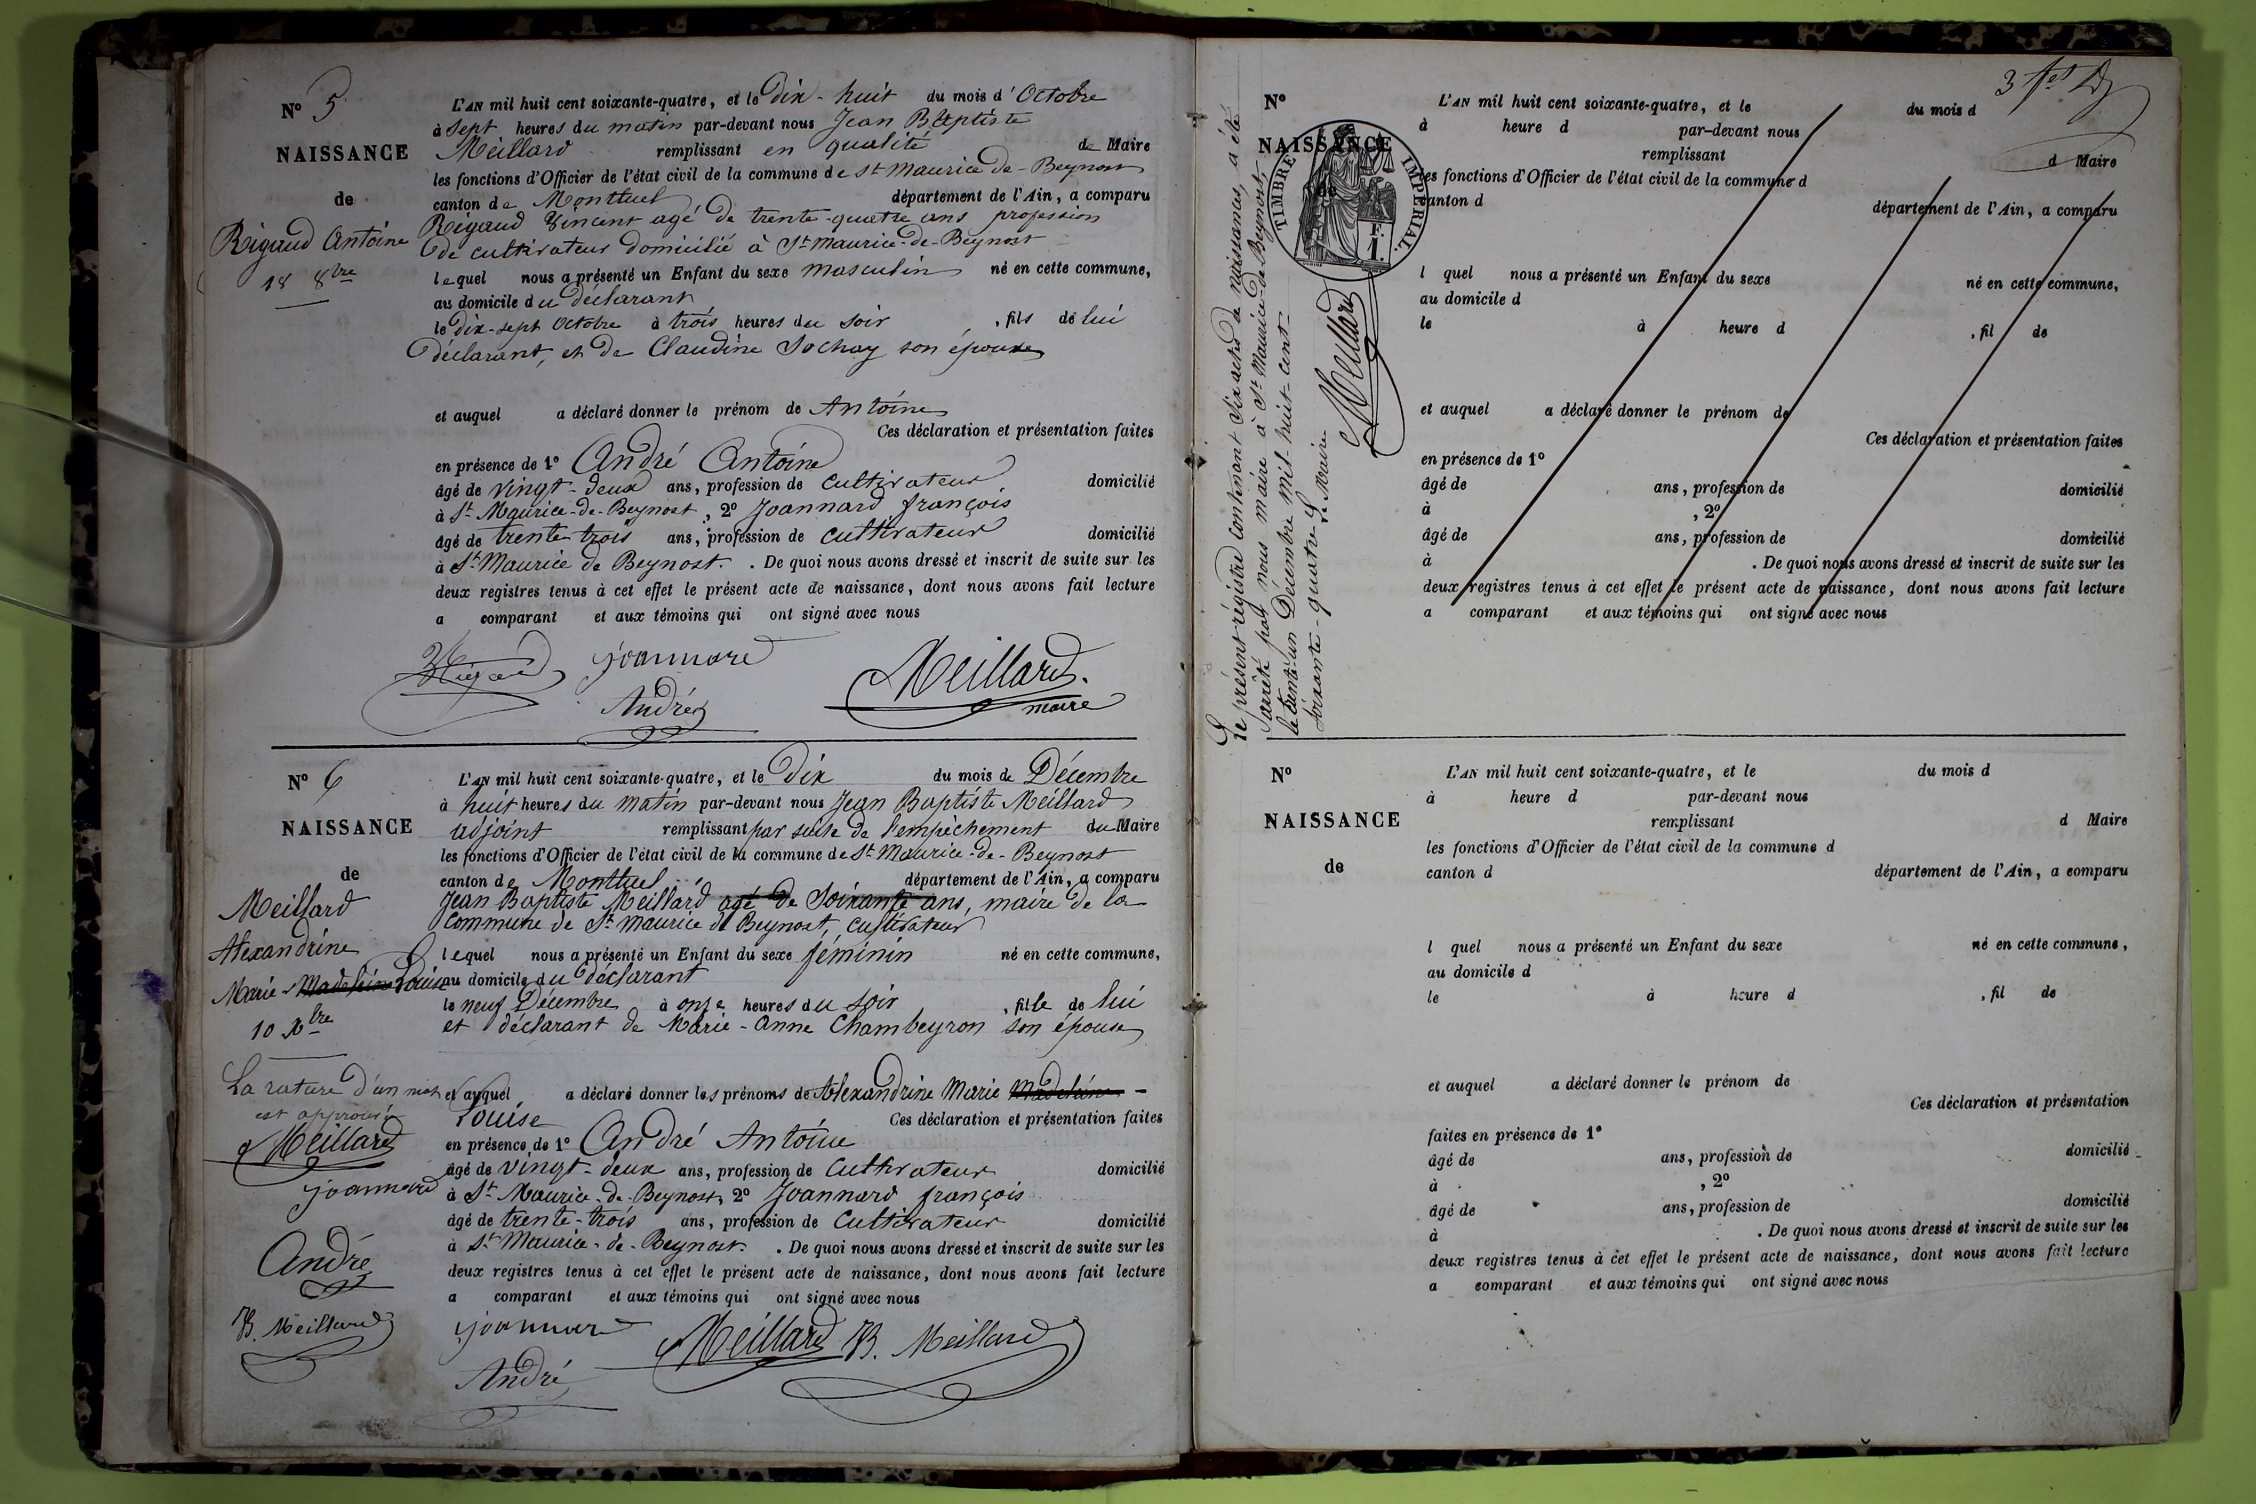 N° 5
NAISSANCE
de
Rigaud Antoine
18 8bre
L'AN mil huit cent soixante-quatre, et le dix-huit du mois d'Octobre
à sept heures du matin par-devant nous Jean Baptiste
Meillard remplissant en qualité de Maire
les fonctions d'Officier de l'état civil de la commune de St Maurice-de-Beynost
canton de Montluel département de l'Ain, a comparu
Rigaud Vincent agé de trente-quatre ans profession
de cultivateur domicilié à St Maurice-de-Beynost
lequel nous a présenté un Enfant du sexe masculin né en cette commune,
au domicile du déclarant
le dix-sept Octobre à trois heures du soir, fils de lui
déclarant, et de Claudine Sochay son épouse
et auquel a déclaré donner le prénom de Antoine
Ces déclaration et présentation faites
en présence de 1° André Antoine
âgé de vingt-deux ans, profession de cultivateur domicilié
à St Maurice-de-Beynost, 2° Joannard françois
âgé de trente trois ans, profession de cultivateur domicilié
à St Maurice de Beynost. . De quoi nous avons dressé et inscrit de suite sur les
deux registres tenus à cet effet le présent acte de naissance, dont nous avons fait lecture
a comparant et aux témoins qui ont signé avec nous
Rigaud joannard Meillard
André maire
N° 6
NAISSANCE
de
Meillard
Alexandrine
Marie Madeleine Louise
10 Xbre
La rature d'un mot
est approuvé
Meillard
joannard
André
JB. Meillard
L'AN mil huit cent soixante-quatre, et le Dix du mois de Décembre
à huit heures du matin par-devant nous Jean Baptiste Meillard
adjoint remplissant par suite de l'empêchement du Maire
les fonctions d'Officier de l'état civil de la commune de St Maurice-de-Beynost
canton de Montluel département de l'Ain, a comparu
Jean Baptiste Meillard agé de Soixante ans, maire de la
commune de St Maurice de Beynost, cultivateur
lequel nous a présenté un Enfant du sexe féminin né en cette commune,
au domicile du déclarant
le neuf Décembre à onze heures du soir, fille de lui
et déclarant de Marie-Anne Chambeyron son épouse
et auquel a déclaré donner les prénoms de Alexandrine Marie Madeleine -
Louise Ces déclaration et présentation faites
en présence de 1° André Antoine
âgé de vingt-deux ans, profession de Cultivateur domicilié
à St Maurice-de-Beynost, 2° Joannard françois
âgé de trente-trois ans, profession de Cultivateur domicilié
à St Maurice-de-Beynost. . De quoi nous avons dressé et inscrit de suite sur les
deux registres tenus à cet effet le présent acte de naissance, dont nous avons fait lecture
a comparant et aux témoins qui ont signé avec nous
joannard Meillard JB. Meillard
André
Le présent régistre contenant Six actes de naissances, a été
arrêté par nous maire à St Maurice-de-Beynost,
le trente-un Décembre mil-huit-cent-
soixante-quatre
Le Maire
Meillard
TIMBRE IMPÉRIAL.
F.
1.
N°
NAISSANCE
de
L'AN mil huit cent soixante-quatre, et le du mois d
à heure d par-devant nous
remplissant d Maire
les fonctions d'Officier de l'état civil de la commune d
canton d département de l'Ain, a comparu
l quel nous a présenté un Enfant du sexe né en cette commune,
au domicile d
le à heure d , fil de
et auquel a déclaré donner le prénom de
Ces déclaration et présentation faites
en présence de 1°
âgé de ans, profession de domicilié
à , 2°
âgé de ans, profession de domicilié
à . De quoi nous avons dressé et inscrit de suite sur les
deux registres tenus à cet effet le présent acte de naissance, dont nous avons fait lecture
a comparant et aux témoins qui ont signé avec nous
N°
NAISSANCE
de
L'AN mil huit cent soixante-quatre, et le du mois d
à heure d par-devant nous
remplissant d Maire
les fonctions d'Officier de l'état civil de la commune d
canton d département de l'Ain, a comparu
l quel nous a présenté un Enfant du sexe né en cette commune,
au domicile d
le à heure d , fil de
et auquel a déclaré donner le prénom de
Ces déclaration et présentation
faites en présence de 1°
âgé de ans, profession de domicilié
à , 2°
âgé de ans, profession de domicilié
à . De quoi nous avons dressé et inscrit de suite sur les
deux registres tenus à cet effet le présent acte de naissance, dont nous avons fait lecture
a comparant et aux témoins qui ont signé avec nous